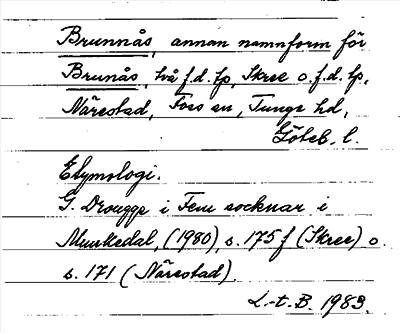 Brunnås, annan namnform för
Brunås, två f.d. tp, Skree o. f.d. tp,
Närestad, Foss sn, Tunge hd,
Göteb. l.
Etymologi.
G. Drougge i Fem socknar i
Munkedal, (1980), s. 175 f (Skree) o.
s. 171 (Närestad).
L.-t. B. 1983.